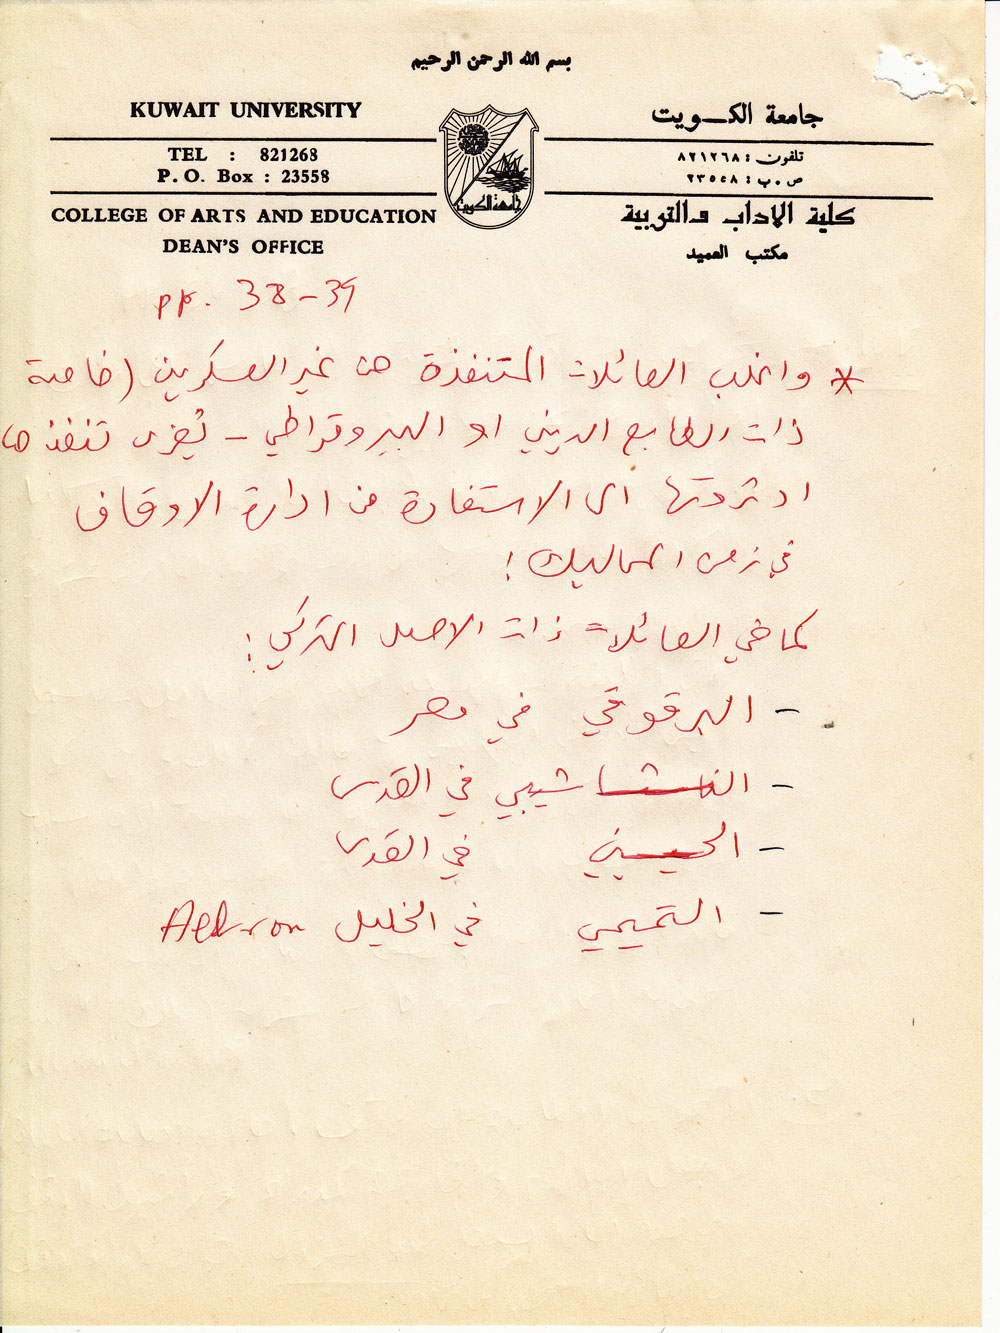 بسم الله الرحمن الرحيم
KUWAIT UNIVERSITY
جامعة الكـويت
TEL : 821268
تلفون : ٨٢١٢٦٨
P. O. Box : 23558
ص . ب : ٢٣٥٥٨
جامعة الكويت
COLLEGE OF ARTS AND EDUCATION
كلية الاداب والتربية
DEAN'S OFFICE
مكتب العميد
pp. 38-39
* واغلب العائلات المتنفذة من غير العسكريين (خاصة
ذات الطابع الديني او البيروقراطي - يُعزى تنفذها
او ثروتها الى الاستفادة من ادارة الاوقاف
في زمن المماليك !
كما في العائلات ذات الاصل التركي :
- البرقوقي في مصر
- النشاشيبي في القدس
- الحسيني في القدس
- التميمي في الخليل Hebron